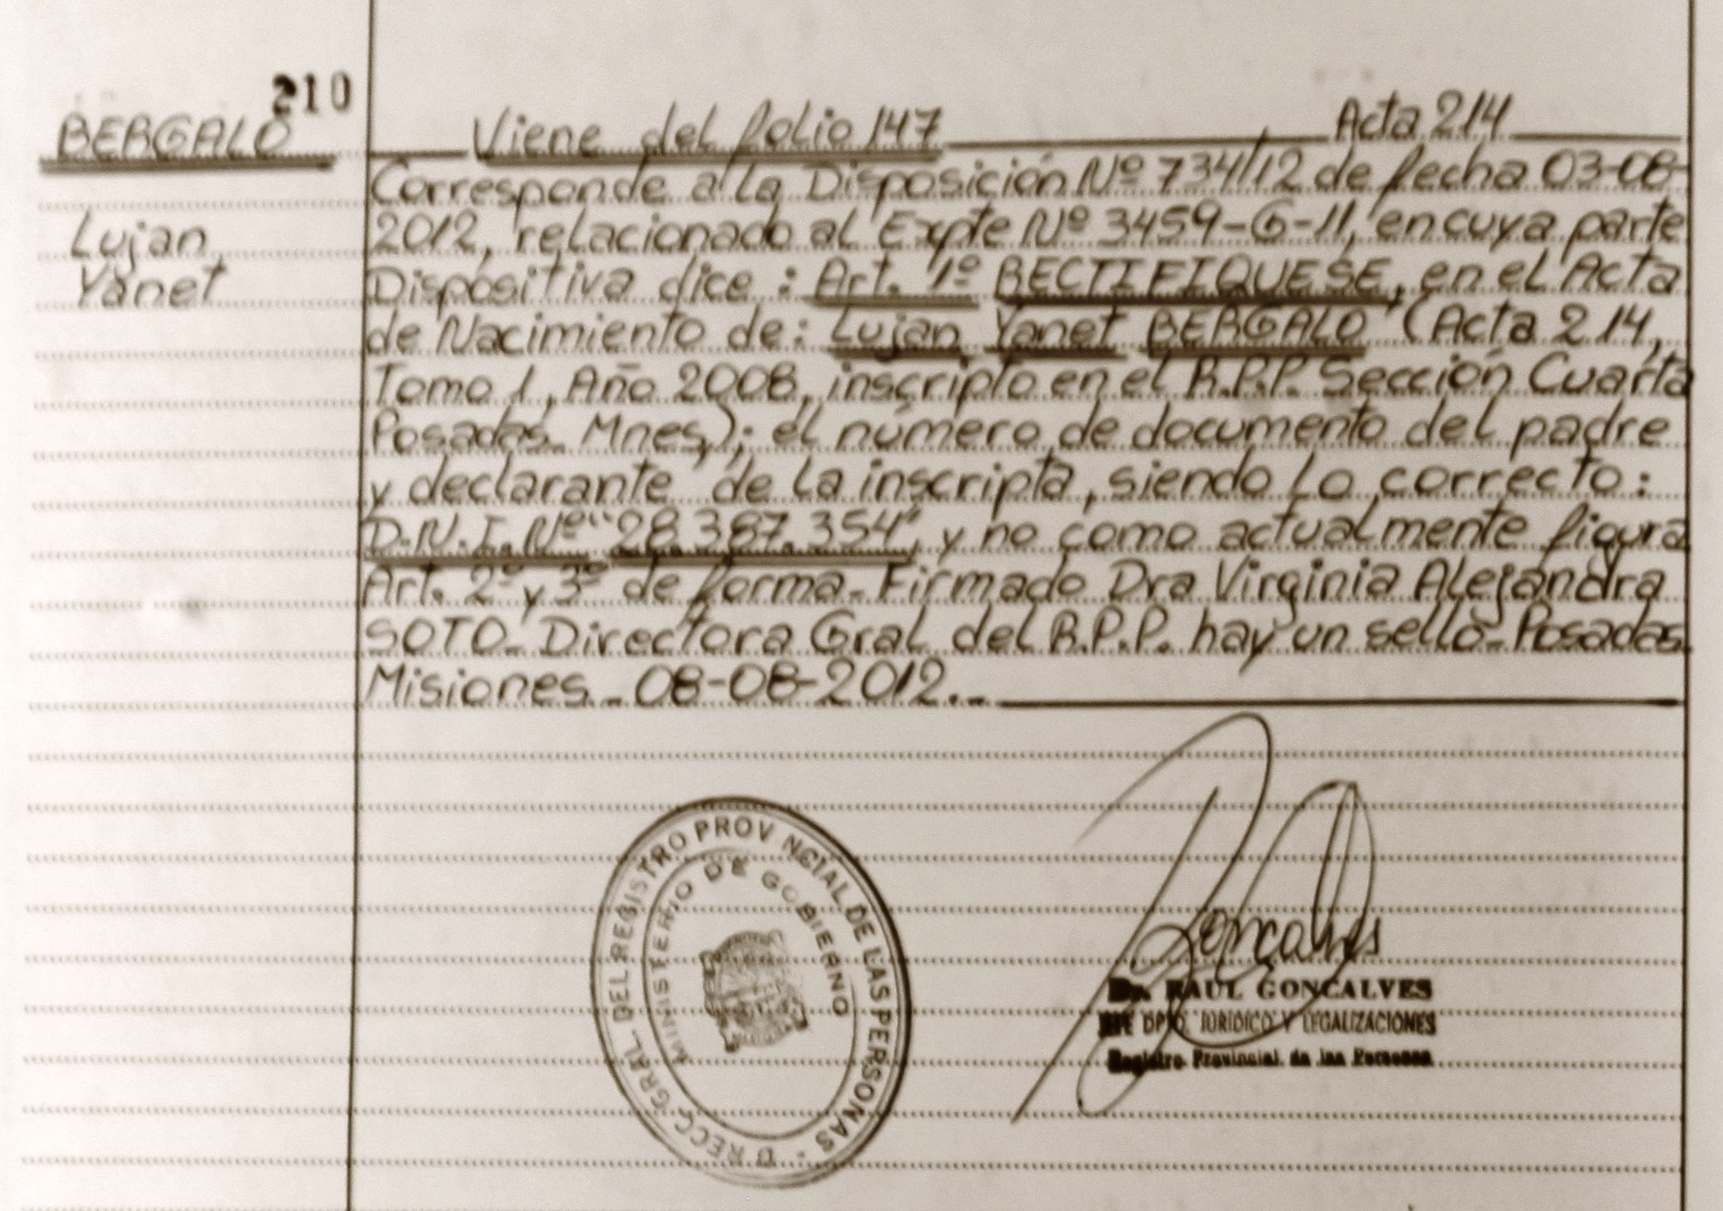 210
BERGALO
Lujan
Yanet
Viene del folio 147 Acta 214
Corresponde a la Disposición Nº 734/12 de fecha 03-08-
2012, relacionado al Expte Nº 3459-G-11, en cuya parte
Dispositiva dice : Art. 1º RECTIFIQUESE, en el Acta
de Nacimiento de: Lujan Yanet BERGALO (Acta 214,
Tomo 1, Año 2008, inscripto en el R.P.P. Sección Cuarta
Posadas- Mnes); el número de documento del padre
y declarante de la inscripta, siendo lo correcto:
D.N.I. Nº "28.387.354", y no como actualmente figura
Art. 2º y 3º de forma- Firmado Dra Virginia Alejandra
SOTO- Directora Gral del R.P.P. hay un sello- Posadas
Misiones- 08-08-2012.-
DIRECC. GRAL. DEL REGISTRO PROVINCIAL DE LAS PERSONAS -
MINISTERIO DE GOBIERNO
Goncalves
Dr. RAUL GONCALVES
JEFE DPTO. JURIDICO Y LEGALIZACIONES
Registro Provincial de las Personas